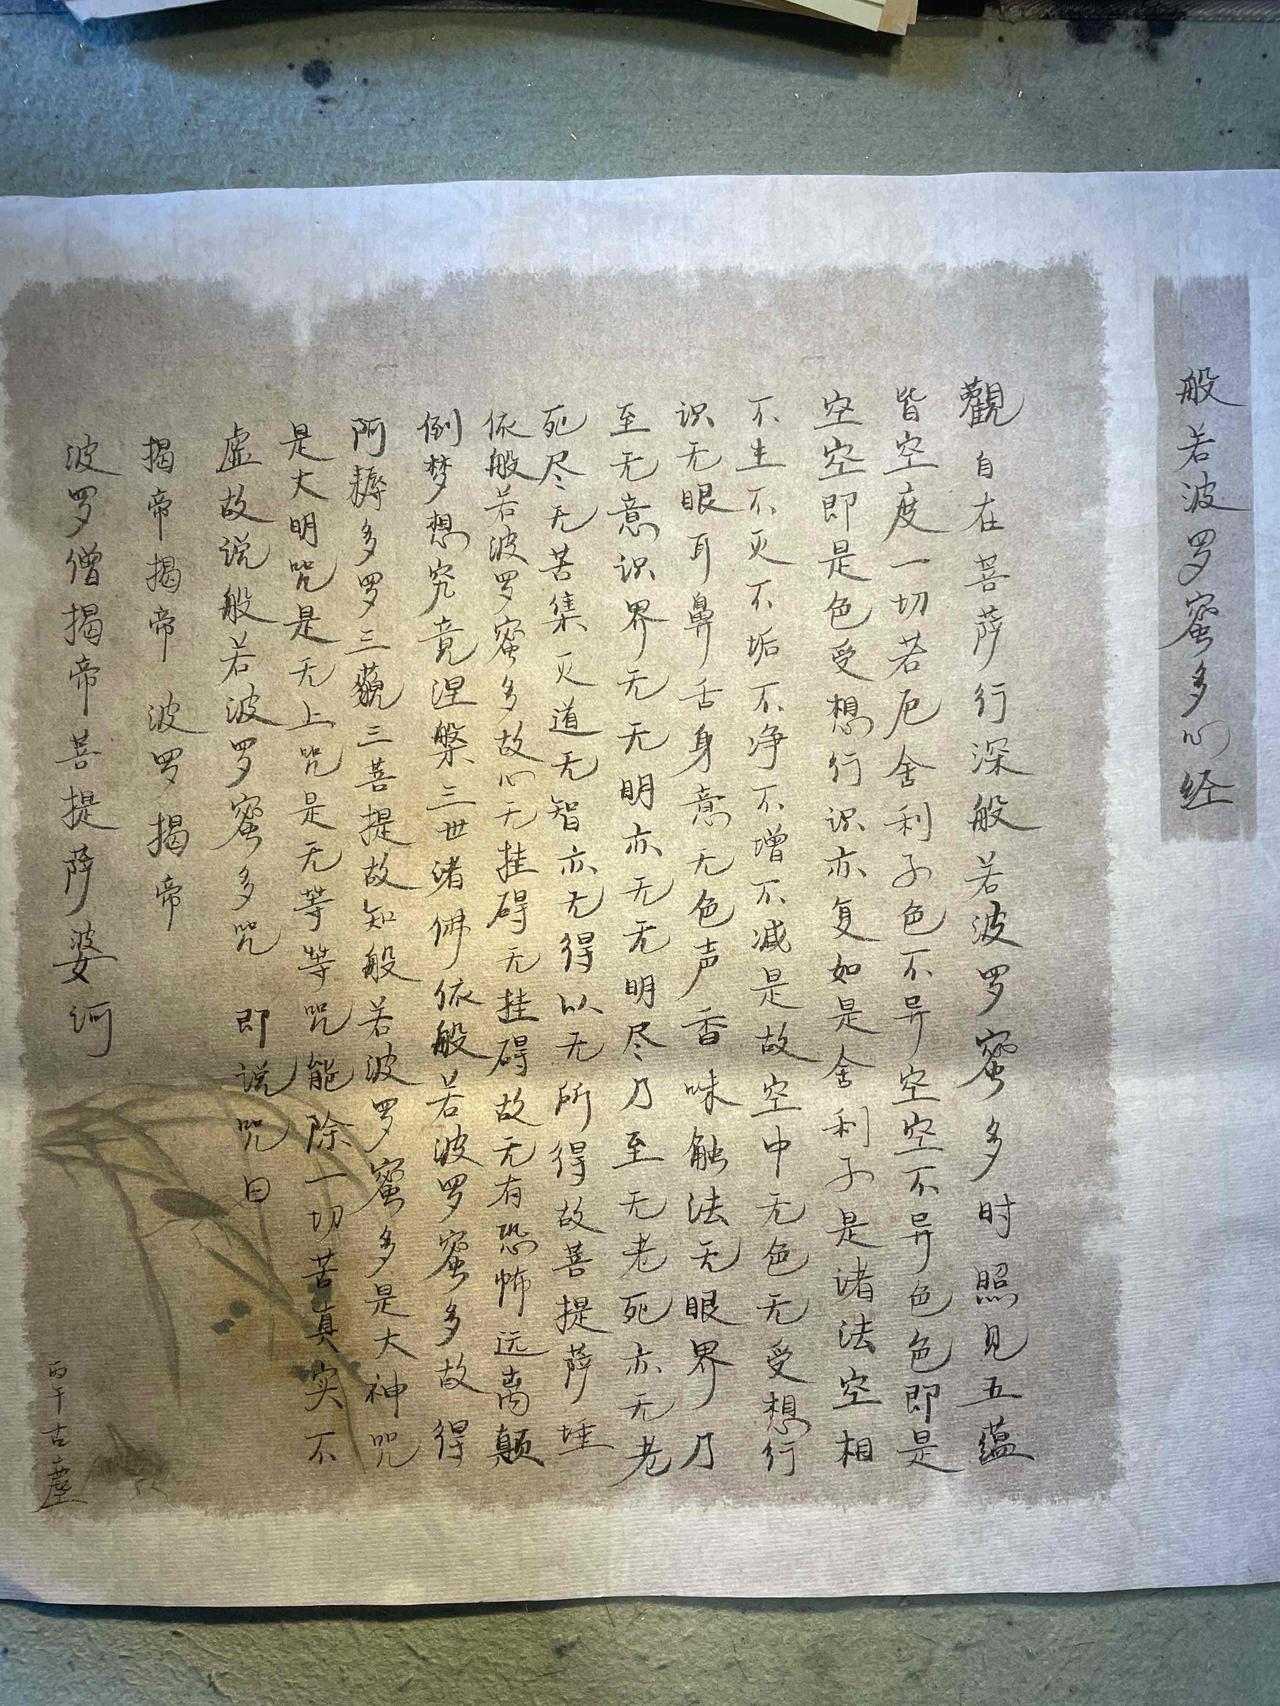 般若波罗蜜多心经
觀自在菩萨行深般若波罗蜜多时照见五蕴
皆空度一切若厄舍利子色不异空空不异色色即是
空空即是色受想行识亦复如是舍利子是诸法空相
不生不灭不垢不净不增不减是故空中无色无受想行
识无眼耳鼻舌身意无色声香味触法无眼界乃
至无意识界无无明亦无无明尽乃至无老死亦无老
死尽无苦集灭道无智亦无得以无所得故菩提萨埵
依般若波罗蜜多故心无挂碍无挂碍故无有恐怖远离颠
倒梦想究竟涅槃三世诸佛依般若波罗蜜多故得
阿耨多罗三藐三菩提故知般若波罗蜜多是大神咒
是大明咒是无上咒是无等等咒能除一切苦真实不
虚故说般若波罗蜜多咒 即说咒曰
揭帝揭帝 波罗揭帝
波罗僧揭帝菩提萨婆诃
丙午古塵